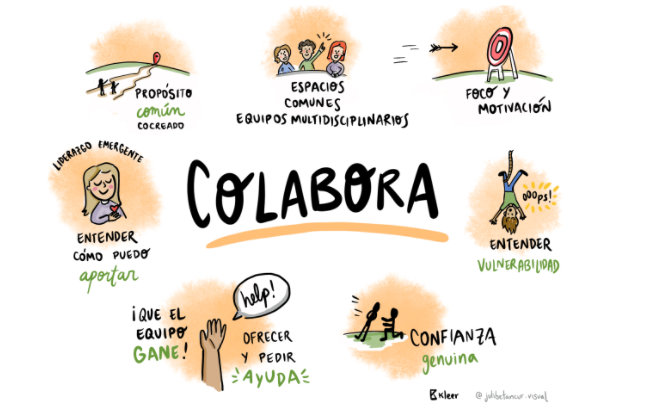 PROPÓSITO
común
COCREADO
ESPACIOS
COMUNES
EQUIPOS MULTIDISCIPLINARIOS
FOCO Y
MOTIVACIÓN
LIDERAZGO EMERGENTE
ENTENDER
CÓMO PUEDO
aportar
COLABORA
OOOps!
ENTENDER
VULNERABILIDAD
¡QUE EL
EQUIPO
GANE!
help!
OFRECER
Y PEDIR
AYUDA
CONFIANZA
genuina
Kleer
@julibetancur.visual